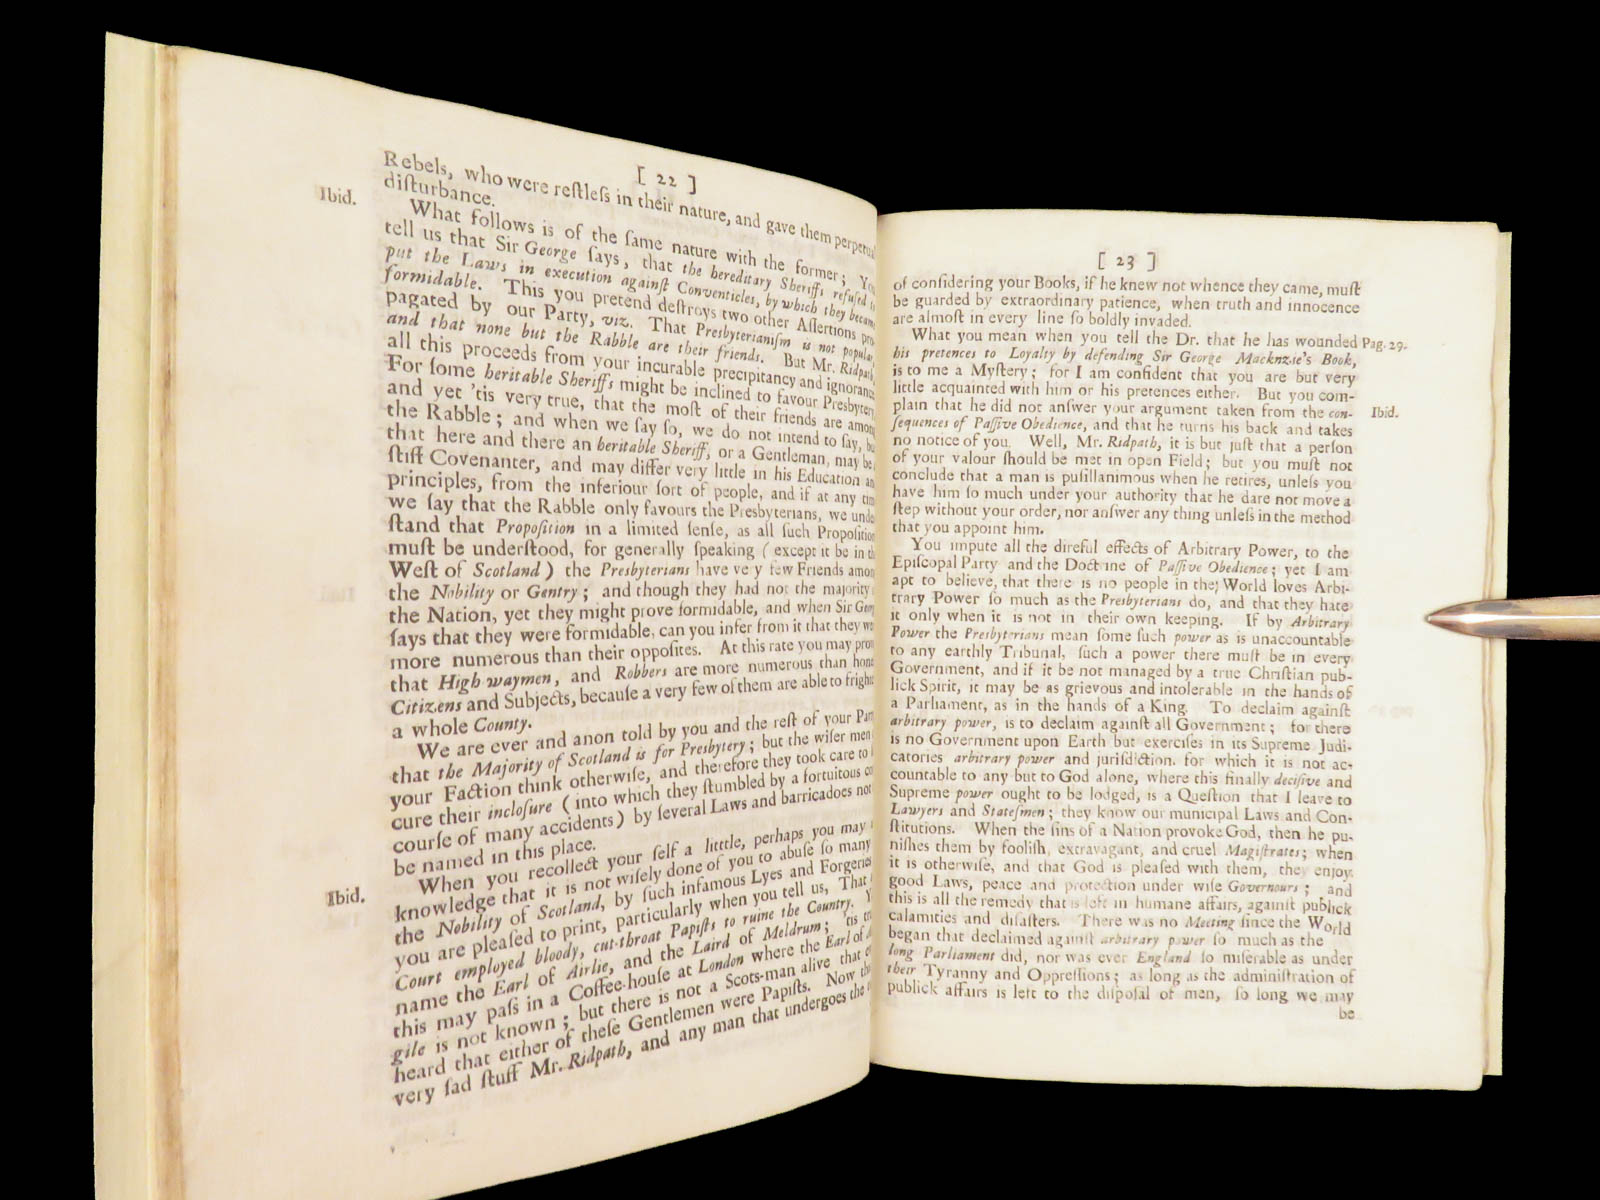 [ 22 ]
Rebels, who were reſtleſs in their nature, and gave them perpetual
diſturbance.
Ibid.
What follows is of the ſame nature with the former; You
tell us that Sir George ſays, that the hereditary Sheriffs refuſed to
put the Laws in execution againſt Conventicles, by which they became
formidable. This you pretend deſtroys two other Aſſertions pro-
pagated by our Party, viz. That Presbyterianiſm is not popular,
and that none but the Rabble are their friends. But Mr. Ridpath,
all this proceeds from your incurable precipitancy and ignorance
For ſome heritable Sheriffs might be inclined to favour Presbytery,
and yet 'tis very true, that the moſt of their friends are among
the Rabble; and when we ſay ſo, we do not intend to ſay, but
that here and there an heritable Sheriff, or a Gentleman, may be a
ſtiff Covenanter, and may differ very little in his Education and
principles, from the inferiour ſort of people, and if at any time
we ſay that the Rabble only favours the Presbyterians, we under
ſtand that Propoſition in a limited ſenſe, as all ſuch Propoſitions
muſt be underſtood, for generally ſpeaking ( except it be in the
Weſt of Scotland ) the Presbyterians have ve y few Friends among
the Nobility or Gentry; and though they had not the majority
the Nation, yet they might prove formidable, and when Sir George
ſays that they were formidable, can you infer from it that they were
more numerous than their oppoſites. At this rate you may prove
that High waymen, and Robbers are more numerous than honeſt
Citizens and Subjects, becauſe a very few of them are able to frighten
a whole County.
We are ever and anon told by you and the reſt of your Party
that the Majority of Scotland is for Presbytery; but the wiſer men
your Faction think otherwiſe, and therefore they took care to
cure their incloſure ( into which they ſtumbled by a fortuitous con
courſe of many accidents ) by ſeveral Laws and barricadoes not
be named in this place.
Ibid.
When you recollect your ſelf a litttle, perhaps you may
knowledge that it is not wiſely done of you to abuſe ſo many
the Nobility of Scotland, by ſuch infamous Lyes and Forgeries
you are pleaſed to print, particularly when you tell us, That
Court employed bloody, cut-throat Papiſts to ruine the Country. Y
name the Earl of Airlie, and the Laird of Meldrum; 'tis true
this may paſs in a Coffee-houſe at London where the Earl of A
gile is not known; but there is not a Scots-man alive that e
heard that either of theſe Gentlemen were Papiſts. Now the
very ſad ſtuff Mr. Ridpath, and any man that undergoes the
[ 23 ]
of conſidering your Books, if he knew not whence they came, muſt
be guarded by extraordinary patience, when truth and innocence
are almoſt in every line ſo boldly invaded.
What you mean when you tell the Dr. that he has wounded Pag. 29.
his pretences to Loyalty by defending Sir George Macknzie's Book,
is to me a Myſtery; for I am confident that you are but very
little acquainted with him or his pretences either. But you com-
plain that he did not anſwer your argument taken from the con- Ibid.
ſequences of Paſſive Obedience, and that he turns his back and takes
no notice of you. Well, Mr. Ridpath, it is but juſt that a perſon
of your valour ſhould be met in open Field; but you muſt not
conclude that a man is puſillanimous when he retires, unleſs you
have him ſo much under your authority that he dare not move a
ſtep without your order, nor anſwer any thing unleſs in the method
that you appoint him.
You impute all the direful effects of Arbitrary Power, to the
Epiſcopal Party and the Doctrine of Paſſive Obedience; yet I am
apt to believe, that there is no people in the World loves Arbi-
trary Power ſo much as the Presbyterians do, and that they hate
it only when it is not in their own keeping. If by Arbitrary
Power the Presbyterians mean ſome ſuch power as is unaccountable
to any earthly Tribunal, ſuch a power there muſt be in every
Government, and if it be not managed by a true Chriſtian pub-
lick Spirit, it may be as grievous and intolerable in the hands of
a Parliament, as in the hands of a King. To declaim againſt
arbitrary power, is to declaim againſt all Government; for there
is no Government upon Earth but exerciſes in its Supreme Judi-
catories arbitrary power and juriſdiction. for which it is not ac-
countable to any but to God alone, where this finally deciſive and
Supreme power ought to be lodged, is a Queſtion that I leave to
Lawyers and Stateſmen; they know our municipal Laws and Con-
ſtitutions. When the ſins of a Nation provoke God, then he pu-
niſhes them by fooliſh, extravagant, and cruel Magiſtrates; when
it is otherwiſe, and that God is pleaſed with them, they enjoy
good Laws, peace and protection under wiſe Governours; and
this is all the remedy that is left in humane affairs, againſt publick
calamities and diſaſters. There was no Meeting ſince the World
began that declaimed againſt arbitrary power ſo much as the
long Parliament did, nor was ever England ſo miſerable as under
their Tyranny and Oppreſſions; as long as the adminiſtration of
publick affairs is left to the diſpoſal of men, ſo long we may
be